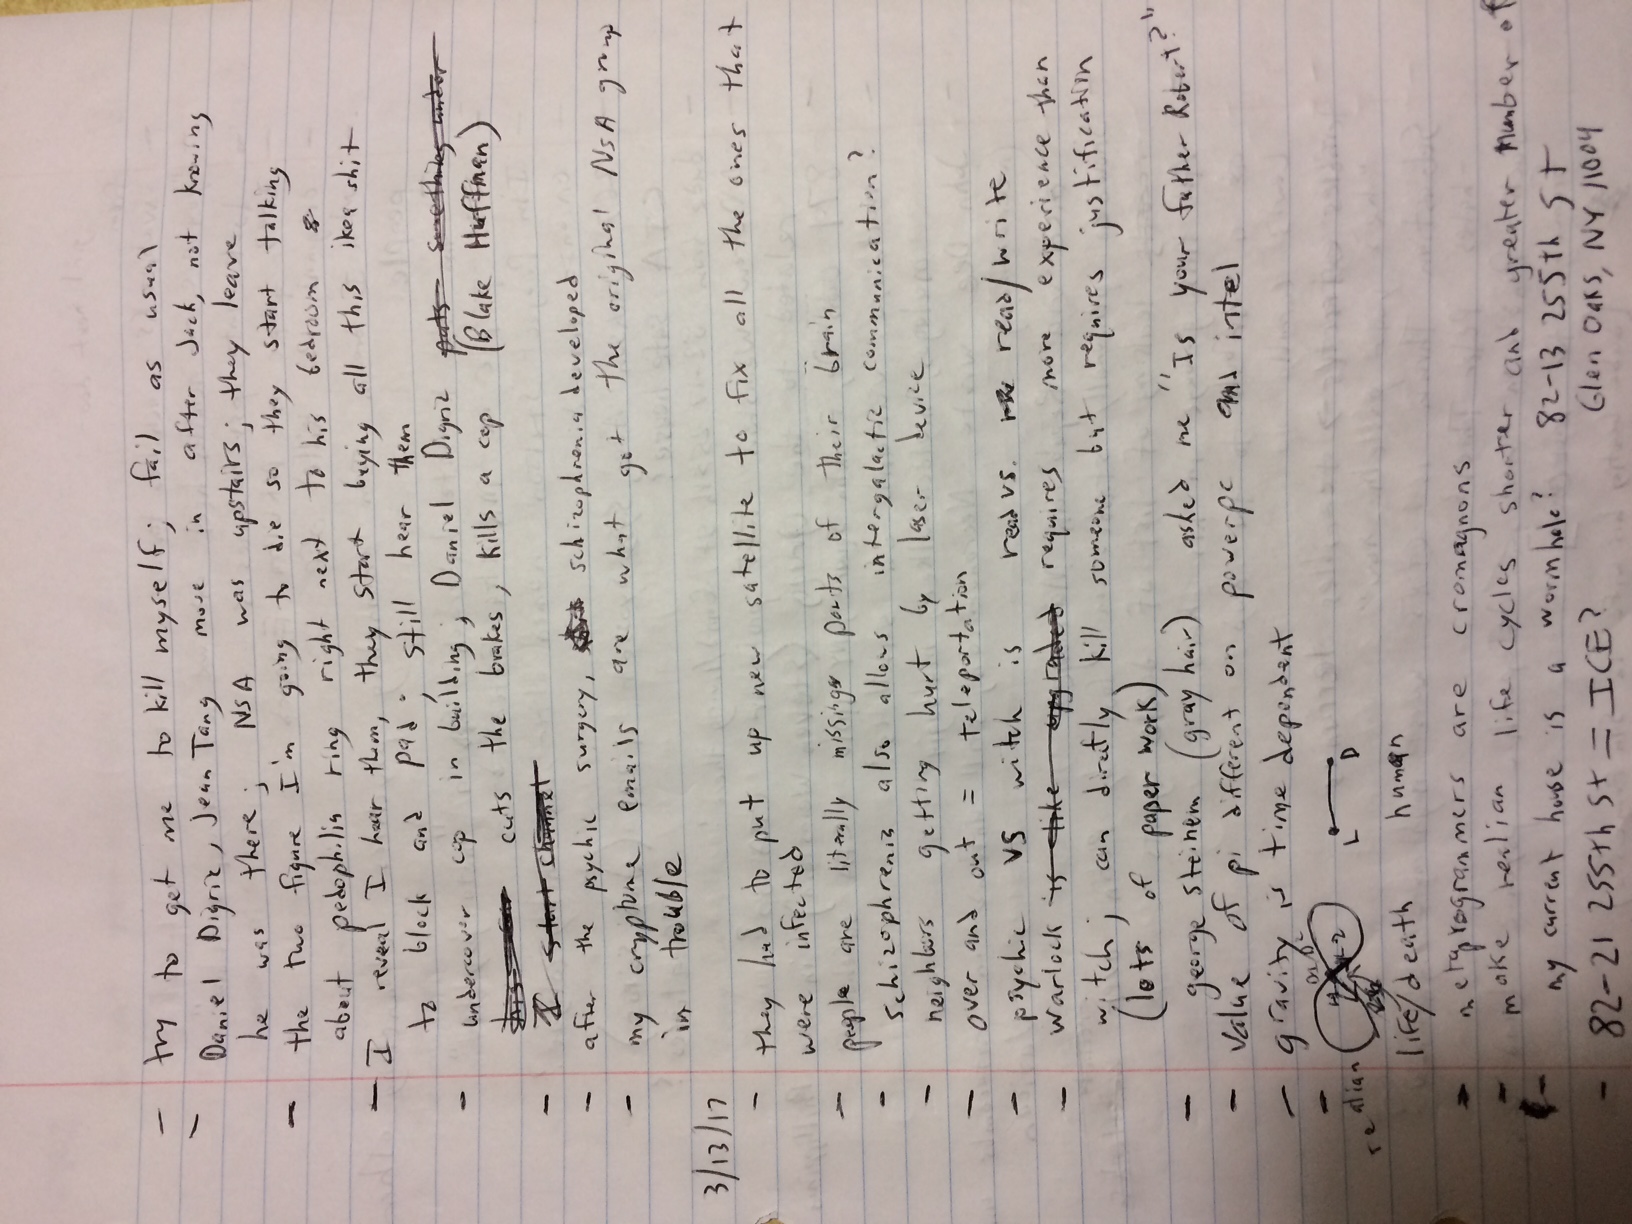 - try to get me to kill myself; fail as usual
- Daniel Digriz, Jean Tang move in after Jack, not knowing
he was there; NSA was upstairs; they leave
- the two figure I'm going to die so they start talking
about pedophilia ring right next to his bedroom
- I reveal I hear them, they start buying all this ikea shit
to block and pad; still hear them
- undercover cop in building; Daniel Digriz puts something under
his cuts the brakes, kills a cop (Blake Huffman)
- I start channel
- after the psychic surgery, schizophrenia developed
- my cryptome emails are what got the original NSA group
in trouble
3/13/17
- they had to put up new satellite to fix all the ones that
were infected
- people are literally missing parts of their brain
- schizophrenia also allows intergalactic communication?
- neighbors getting hurt by laser device
- over and out = teleportation
- psychic vs witch is read vs. read/write
- warlock is like upgraded requires more experience than
witch; can directly kill someone but requires justification
(lots of paper work)
- george steinem (gray hair) asked me "Is your father Robert?"
- value of pi different on powerpc and intel
- gravity is time dependent
-
realian L D
life/death human
- metaprogrammers are cromagnons
- make realian life cycles shorter and greater number of
- my current house is a wormhole? 82-13 255th St
- 82-21 255th St = ICE? Glen Oaks, NY 11004